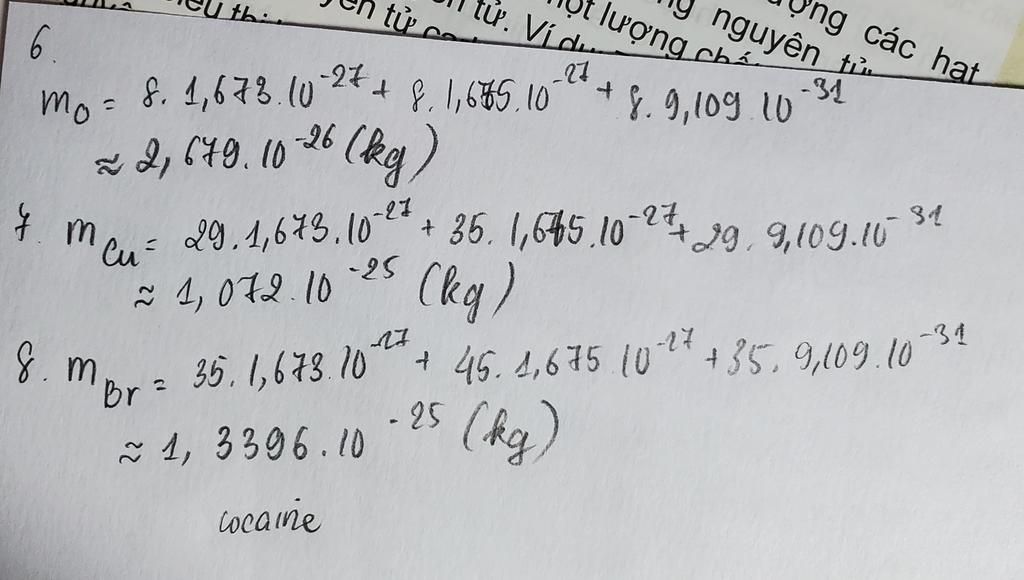 ượng các hạt
ng nguyên tử
một lượng chấ
tử. Ví dụ
yên tử
6.
m_O = 8. 1,673.10^-27 + 8. 1,675.10^-27 + 8. 9,109.10^-31
≈ 2,679.10^-26 (kg)
7. m_Cu = 29.1,673.10^-27 + 35. 1,675.10^-27 + 29. 9,109.10^-31
≈ 1,072.10^-25 (kg)
8. m_Br = 35.1,673.10^-27 + 45. 1,675.10^-27 + 35. 9,109.10^-31
≈ 1,3396.10^-25 (kg)
cocaine